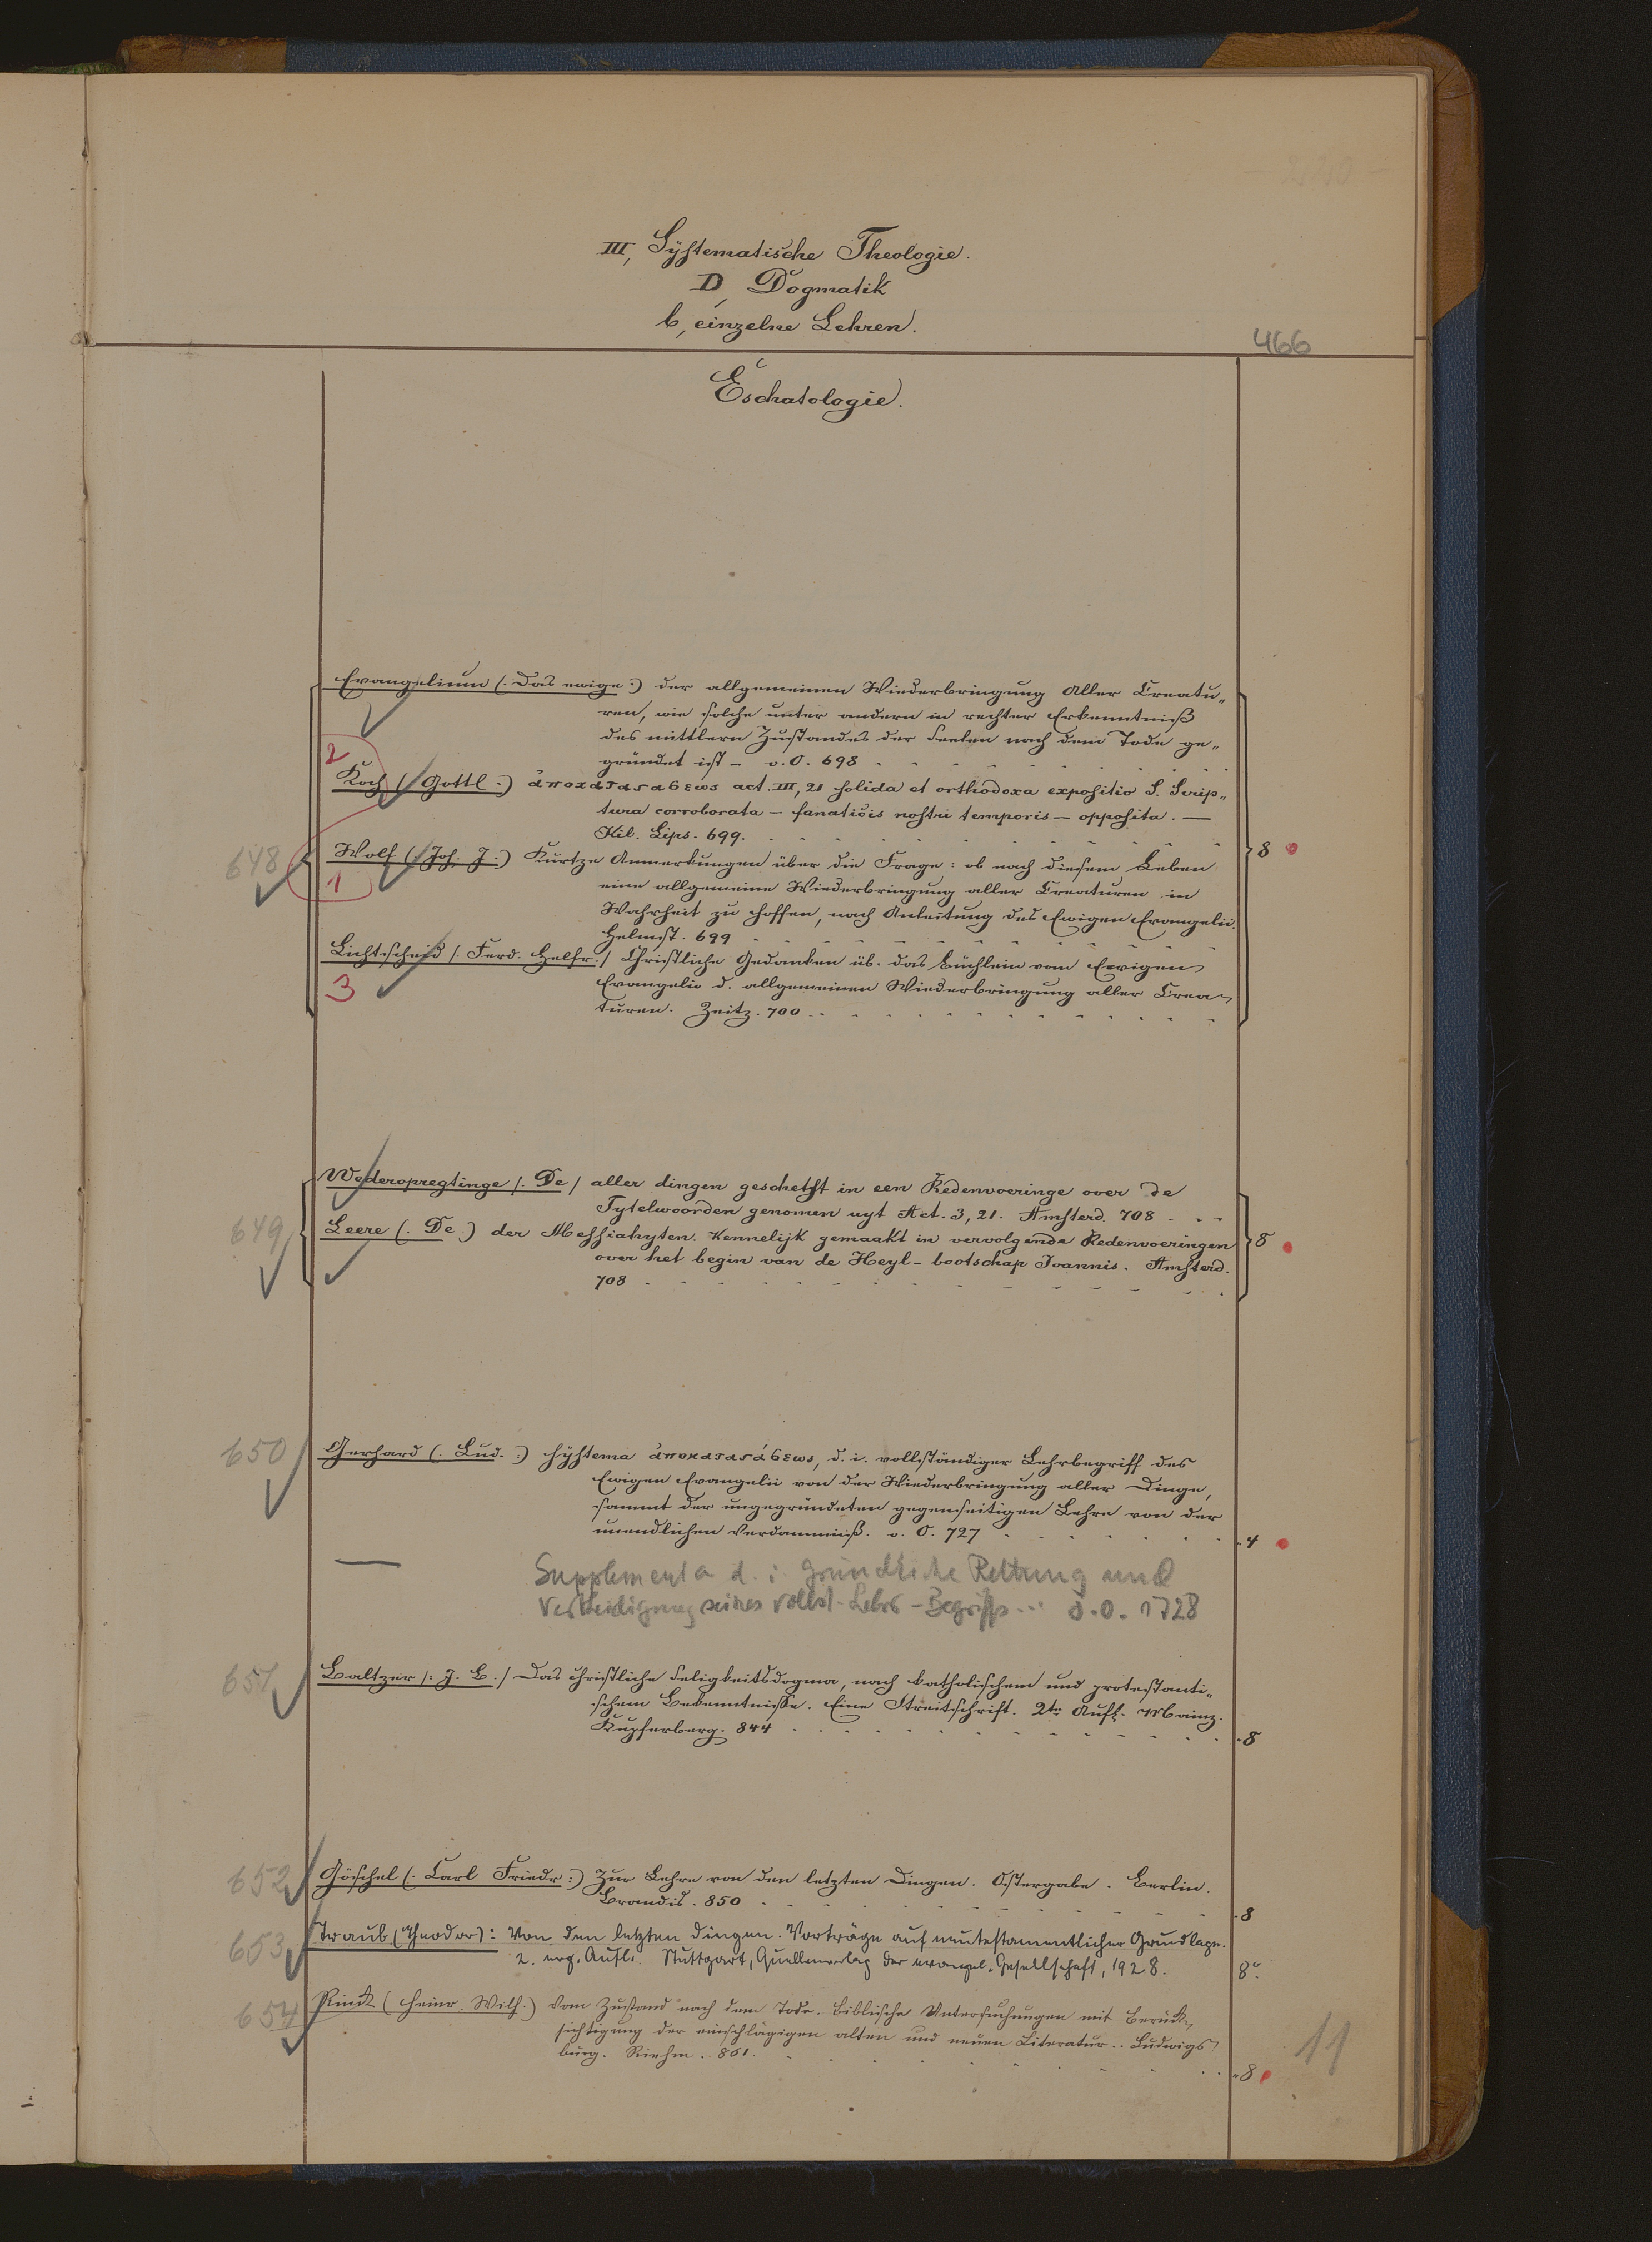 III, Systematische Theologie.
D, Dogmatik
b, einzelne Lehren.
466
Eschatologie.
Evangelium (: Das ewige :) der allgemeinen Wiederbringung Aller Creatu„
ren, wie solche unter andern in rechter Erkenntniß
des mittlern Zustandes der Seelen nach dem Tode ge„
gründet ist – o. O. 698
2
Koch (: Gottl :) ἀποκαταϛάσεως act. III, 21 solida et orthodoxa expositio S. Scrip„
tura corroborata – fanaticis nostri temporis – opposita. –
Kil. Lips. 699.
648
Wolf (: Joh. J :) Kurtze Anmerkungen über die Frage: ob nach diesem Leben
8
1
eine allgemeine Wiederbringung aller Creaturen in
Wahrheit zu hoffen, nach Anleitung des Ewigen Evangelii.
Helmst. 699
Lichtscheid /: Ferd. Helfr :/ Christliche Gedanken üb. das Büchlein vom Ewigen
3
Evangelio d. allgemeinen Wiederbringung aller Crea„
turen. Zeitz. 700
Wederopregtinge /: De / aller dingen geschetst in een Redenvoeringe over de
Tytelwoorden genomen uyt Act. 3, 21. Amsterd. 708
649
Leere (: De :) der Messiahyten. Kennelijk gemaakt in vervolgende Redenvoeringen
8
over het begin van de Heyl-bootschap Joannis. Amsterd.
708
650
Gerhard (: Lud. :) systema ἀποκαταϛάσεως, d. i. vollständiger Lehrbegriff des
Ewigen Evangelii von der Wiederbringung aller Dinge,
sammt der ungegründeten gegenseitigen Lehre von der
unendlichen Verdammniß. o. O. 727
4
— Supplementa d. i. gründliche Rettung und
Vertheidigung seines vollst. Lehr-Begriffs ... o.O. 1728
651
Baltzer /: J. B. / Das christliche Seligkeitsdogma, nach katholischem und protestanti„
schem Bekenntnisse. Eine Streitschrift. 2te Aufl. Mainz.
Kupferberg. 844
8
652
Göschel (: Carl Friedr :) Zur Lehre von den letzten Dingen. Ostergabe. Berlin.
Brandis. 850
8
653
Traub (Theodor): Von den letzten Dingen. Vorträge auf neutestamentlicher Grundlage.
2. erg. Aufl. Stuttgart, Quellenverlag der evangel. Gesellschaft, 1928.
8°.
654
Rinck (Heinr. Wilh.) Vom Zustand nach dem Tode. Biblische Untersuchungen mit Berück„
sichtigung der einschlägigen alten und neuen Literatur .. Ludwigs„
burg. Riehm. 861.
8
11